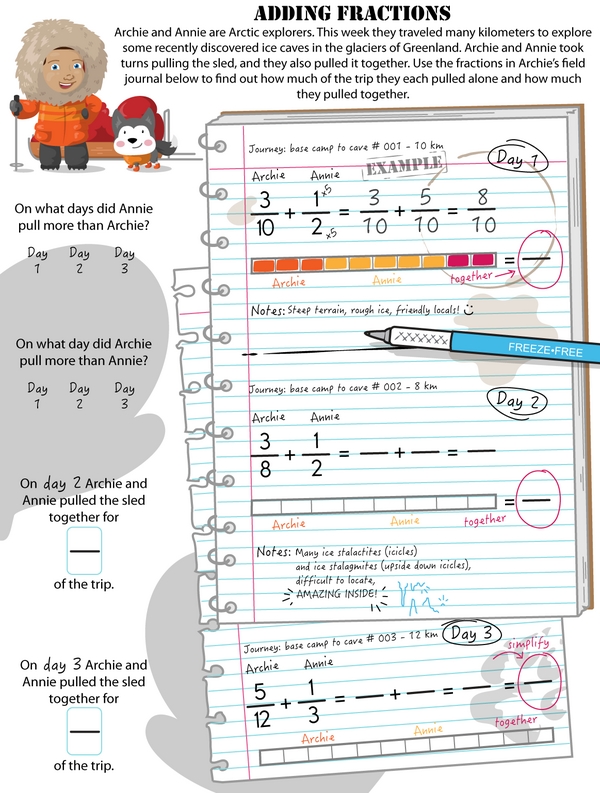 ADDING FRACTIONS
Archie and Annie are Arctic explorers. This week they traveled many kilometers to explore
some recently discovered ice caves in the glaciers of Greenland. Archie and Annie took
turns pulling the sled, and they also pulled it together. Use the fractions in Archie's field
journal below to find out how much of the trip they each pulled alone and how much
they pulled together.
On what days did Annie
pull more than Archie?
Day Day Day
1 2 3
On what day did Archie
pull more than Annie?
Day Day Day
1 2 3
On day 2 Archie and
Annie pulled the sled
together for
of the trip.
On day 3 Archie and
Annie pulled the sled
together for
of the trip.
Journey: base camp to cave # 001 - 10 km
Day 1
EXAMPLE
Archie Annie
3/10 + 1 x5/2 x5 = 3/10 + 5/10 = 8/10
=
Archie Annie together
Notes: Steep terrain, rough ice, friendly locals!
FREEZE•FREE
Journey: base camp to cave # 002 - 8 km
Day 2
Archie Annie
3/8 + 1/2 = + =
=
Archie Annie together
Notes: Many ice stalactites (icicles)
and ice stalagmites (upside down icicles),
difficult to locate,
AMAZING INSIDE!
Journey: base camp to cave # 003 - 12 km Day 3
simplify
Archie Annie
5/12 + 1/3 = + = =
Archie Annie together